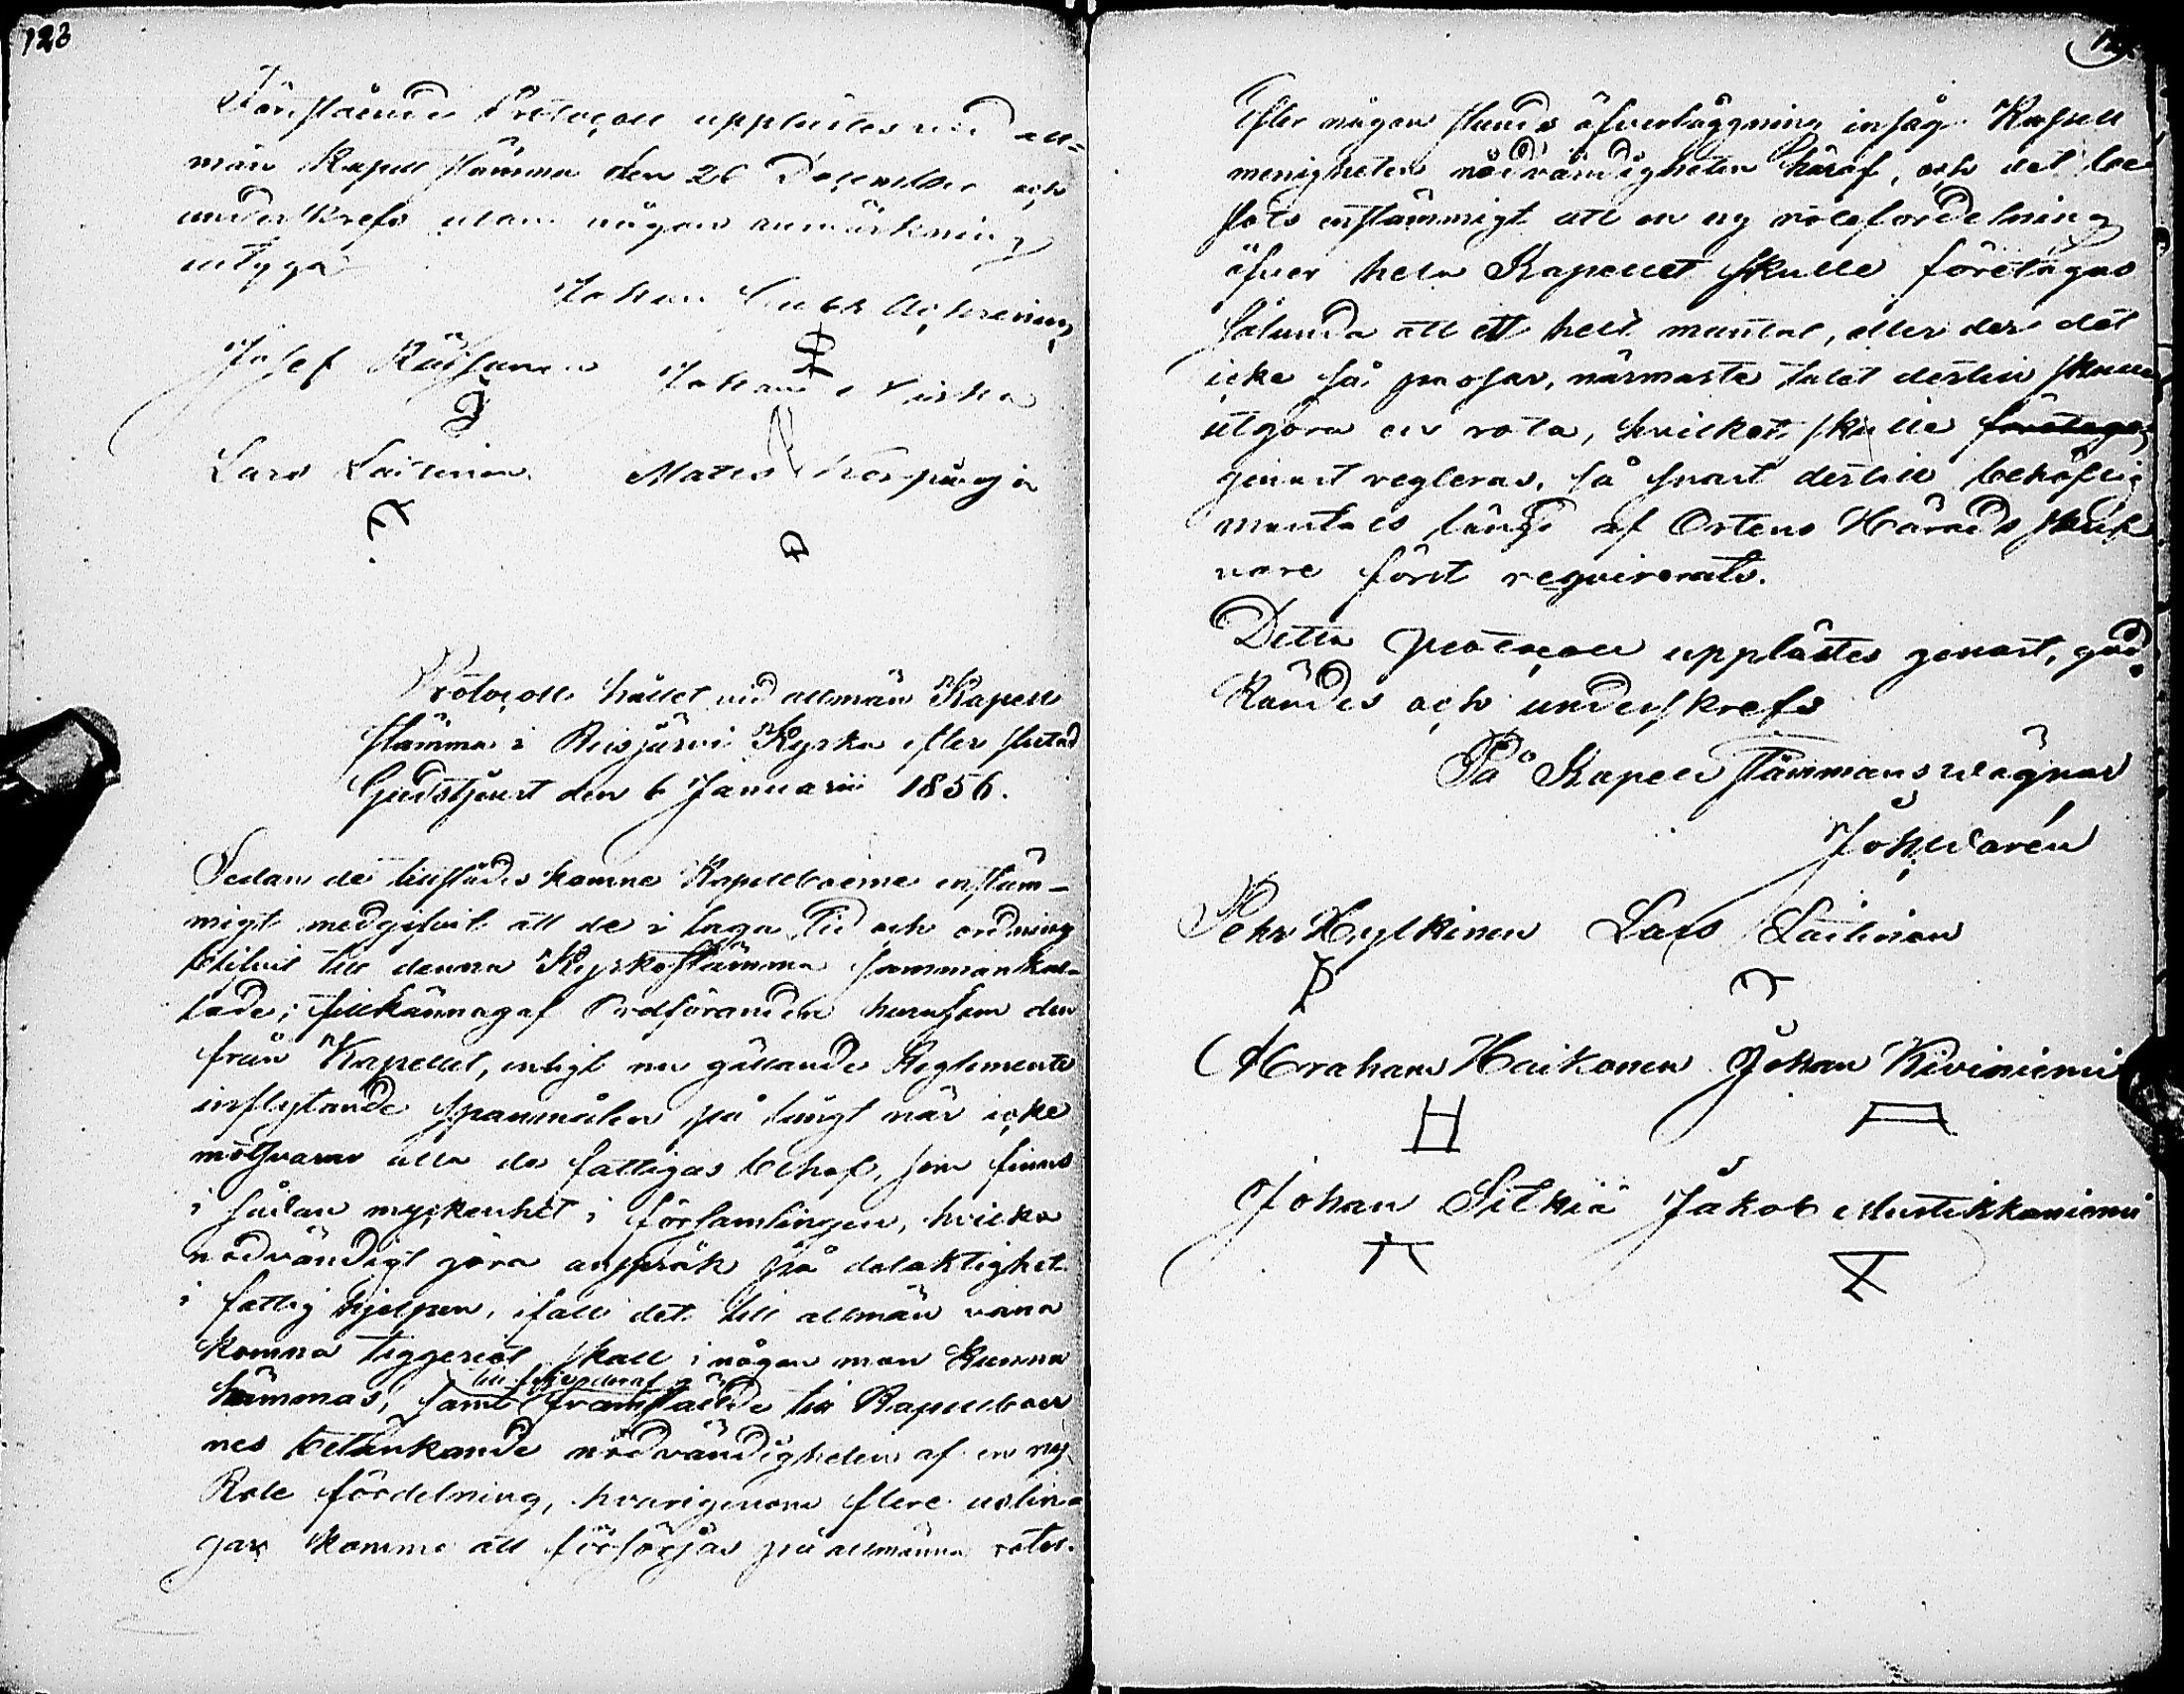 123
Förestående Protocoll upplästes vid all=
män Kapell stämma den 26 December och
underskrefs utan någon anmärkning
intyga
Johan
Josef Räisänen Johan Niska
Lars Laitinen Matts
Protocoll hållet vid allmän Kapell
stämma i Reisjärvi Kyrka efter slutad
Gudstjenst den 6 Januarii 1856.
Sedan de tillstädes komne Kapellboerne enstäm-
migt medgifvit att de i laga tid och ordning
blifvit till denna Kyrkostämma samman kal-
lade; tillkännagaf Ordföranden hurusom den
från Kapellet, enligt nu gällande Reglemente
inflytande spannmålen på långt när icke
motsvarar alla de fattigas behof, som finnas
i sådan myckenhet i församlingen, hvilka
nödvändigt göra anspråk på delaktighet
i fattig hjelpen, ifall det till allmän vana
komna tiggeriet skall i någon mon kunna
hämmas, samt framstälde till Kapellboer
nes betänkande nödvändigheten af en ny
Rote fördelning, hvarigenom flere uslin-
gar komme att försörjas på allmänna rotel.
Efter någon stunds öfverläggning insåg Kapell
menigheten nödvändigheten häraf, och det be
slöts enstämmigt att en ny rotefördelning
öfver hela Kapellet skulle företagas
sålunda att ett helt mantal, eller der det
icke så passar, närmaste talet dertill skulle
utgöra en rota, hvilket skulle företagas
genast regleras, så snart dertill behöflig
mantals längd af Ortens Härads skrif
vare först requirerats.
Detta protocoll upplästes genast, god
kändes och underskrefs
På Kapell stämmans vägnar
Joh. Warén
Pehr Hylkinen Lars Laitinen
Abraham Haikonen Johan Kiviniemi
Johan Silkiä Jakob Mustikkaniemi